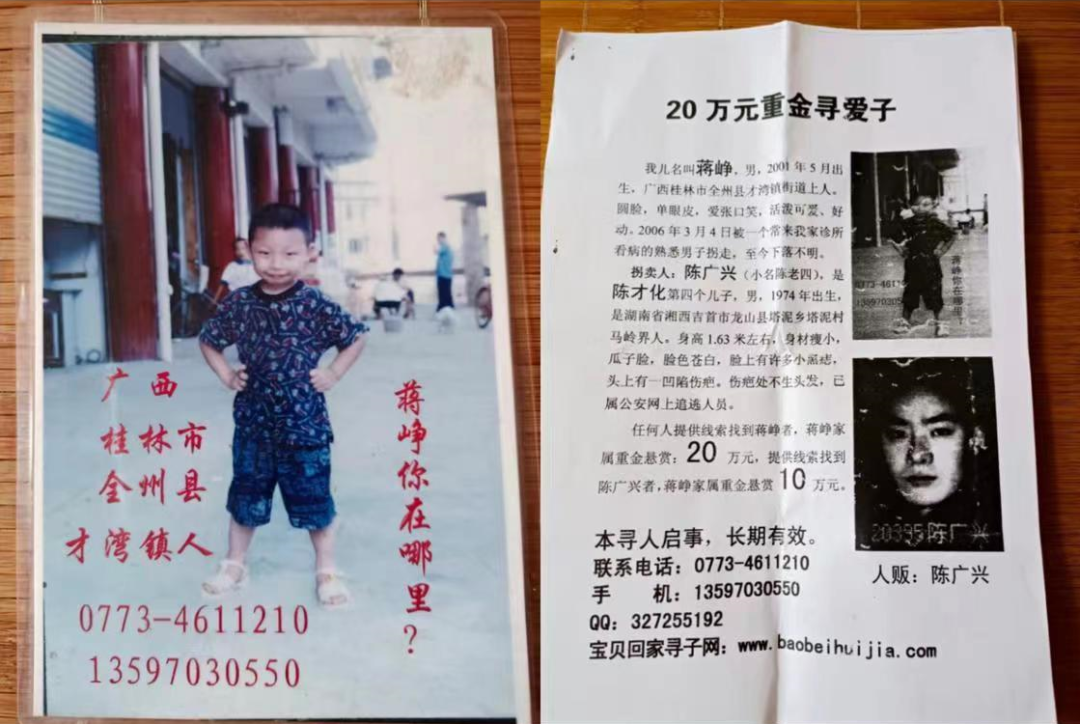 广西
桂林市
全州县
才湾镇人
蒋峥你在哪里？
0773-4611210
13597030550
20万元重金寻爱子
我儿名叫蒋峥，男，2001年5月出
生，广西桂林市全州县才湾镇街道上人。
圆脸，单眼皮，爱张口笑，活泼可爱、好
动。2006年3月4日被一个常来我家诊所
看病的熟悉男子拐走，至今下落不明。
拐卖人：陈广兴（小名陈老四），是
陈才化第四个儿子，男，1974年出生，
是湖南省湘西吉首市龙山县塔泥乡塔泥村
马岭界人。身高1.63米左右，身材瘦小，
瓜子脸，脸色苍白，脸上有许多小黑痣，
头上有一凹陷伤疤。伤疤处不生头发，已
属公安网上追逃人员。
任何人提供线索找到蒋峥者，蒋峥家
属重金悬赏：20万元，提供线索找到
陈广兴者，蒋峥家属重金悬赏10万元。
本寻人启事，长期有效。
联系电话：0773-4611210
手　机：13597030550
QQ：327255192
宝贝回家寻子网：www.baobeihuijia.com
蒋峥你在哪里？
0773-4611
135970305
陈广兴
人贩：陈广兴